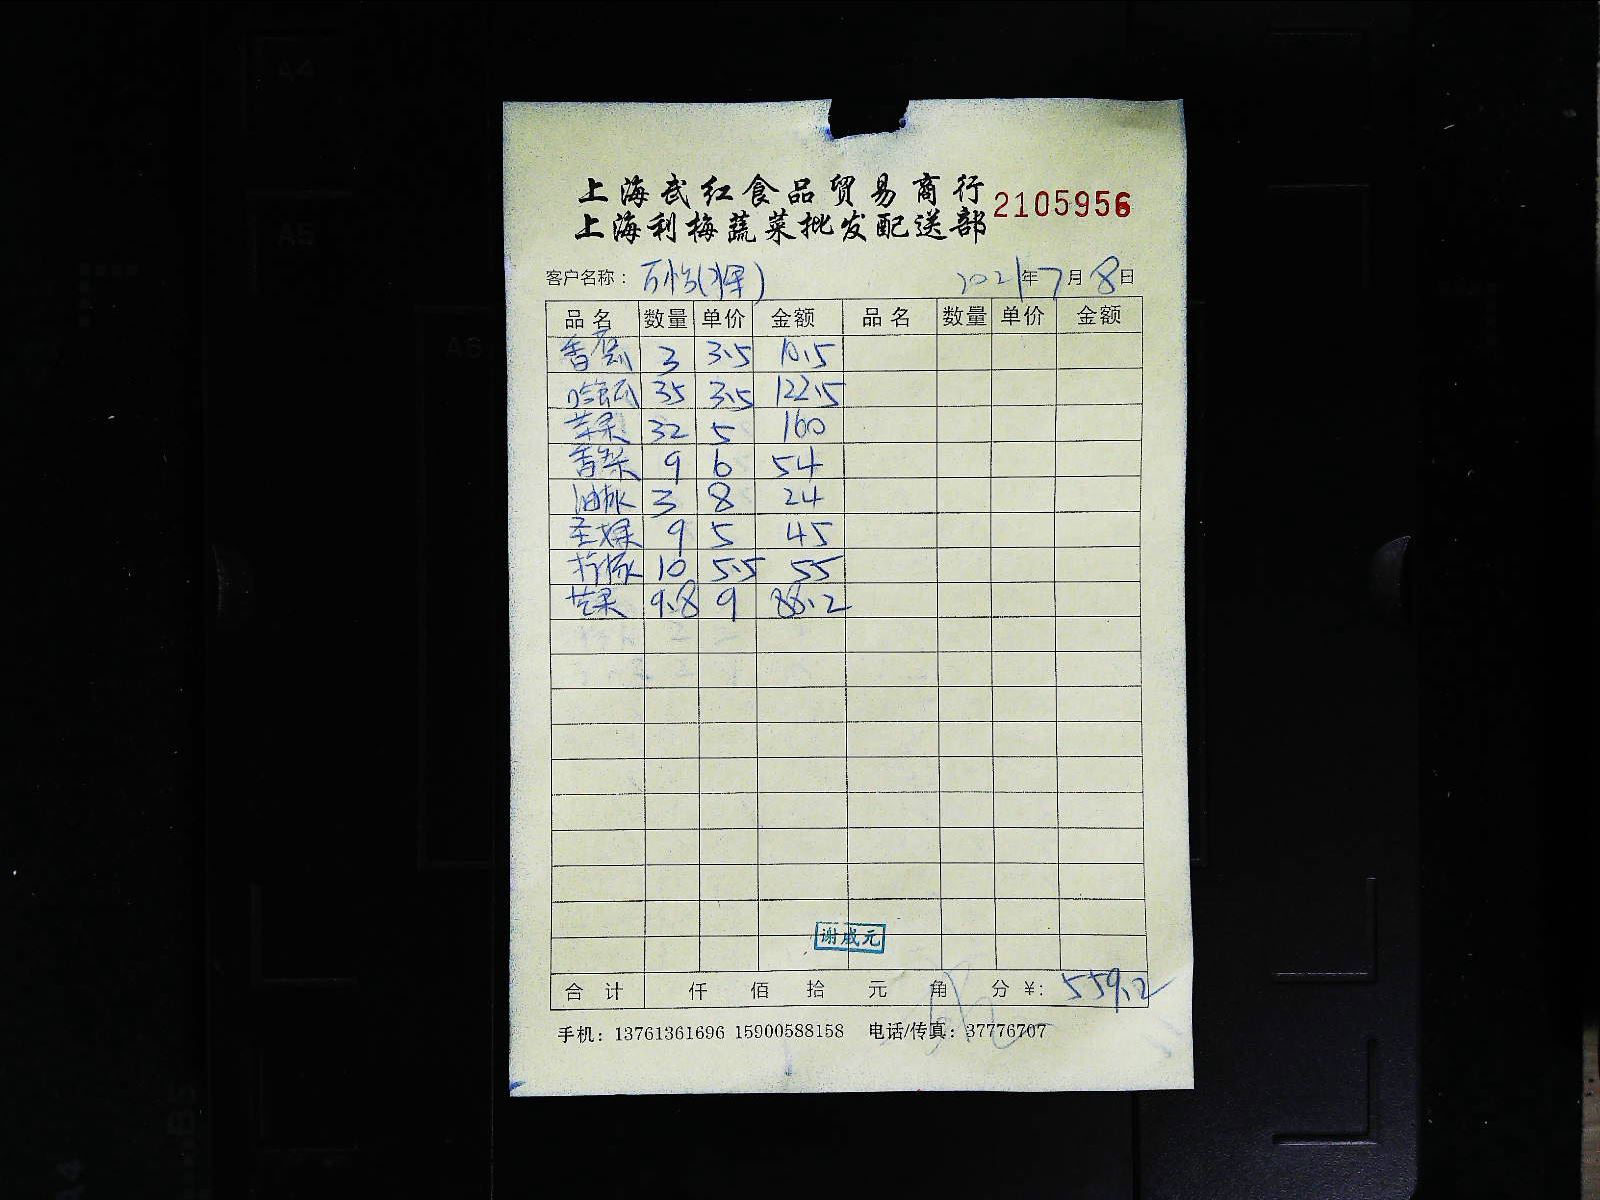 上海武红食品贸易商行
上海利梅蔬菜批发配送部
2105956
客户名称： 万怡(水果) 2021年7月8日
品名 数量 单价 金额 品名 数量 单价 金额
3 3.5 10.5
哈密瓜 35 3.5 122.5
苹果 32 5 160
香梨 9 6 54
油桃 3 8 24
圣女果 9 5 45
柠檬 10 5.5 55
芒果 9.8 9 88.2
谢成元
合计 仟 佰 拾 元 角 分 ¥: 559.2
手机：13761361696 15900588158 电话/传真：37776707